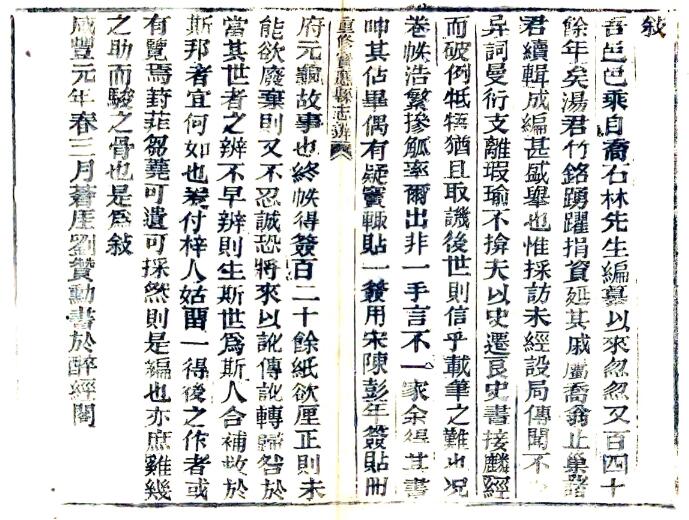 敍
吾邑邑乘自喬石林先生編纂以來忽忽又百四十
餘年矣湯君竹銘踴躍捐資延其戚屬喬翁止巢諸
君續輯成編甚盛舉也惟採訪未經設局傳聞不
异詞曼衍支離瑕瑜不揜夫以史遷良史書接麟經
而破例牴牾猶且取譏後世則信乎載筆之難也况
卷帙浩繁摻觚率爾出非一手言不一家余得其書
呻其佔畢偶有疑竇輒貼一簽用宋陳彭年簽貼冊
重修寶應縣志辨
府元龜故事也終帙得簽百二十餘紙欲厘正則未
能欲廢棄則又不忍誠恐將來以訛傳訛轉歸咎於
當其世者之辨不早辨則生斯世爲斯人合補救於
斯邦者宜何如也爰付梓人姑畱一得後之作者或
有覽焉葑菲芻蕘可遺可採然則是編也亦庶雞幾
之助而駿之骨也是爲敍
咸豐元年春三月蒼厓劉贊勳書於醉經閣